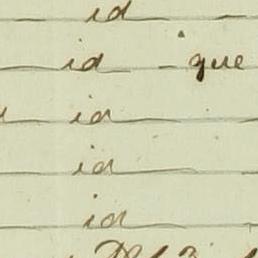 id
id - que
id
id
id